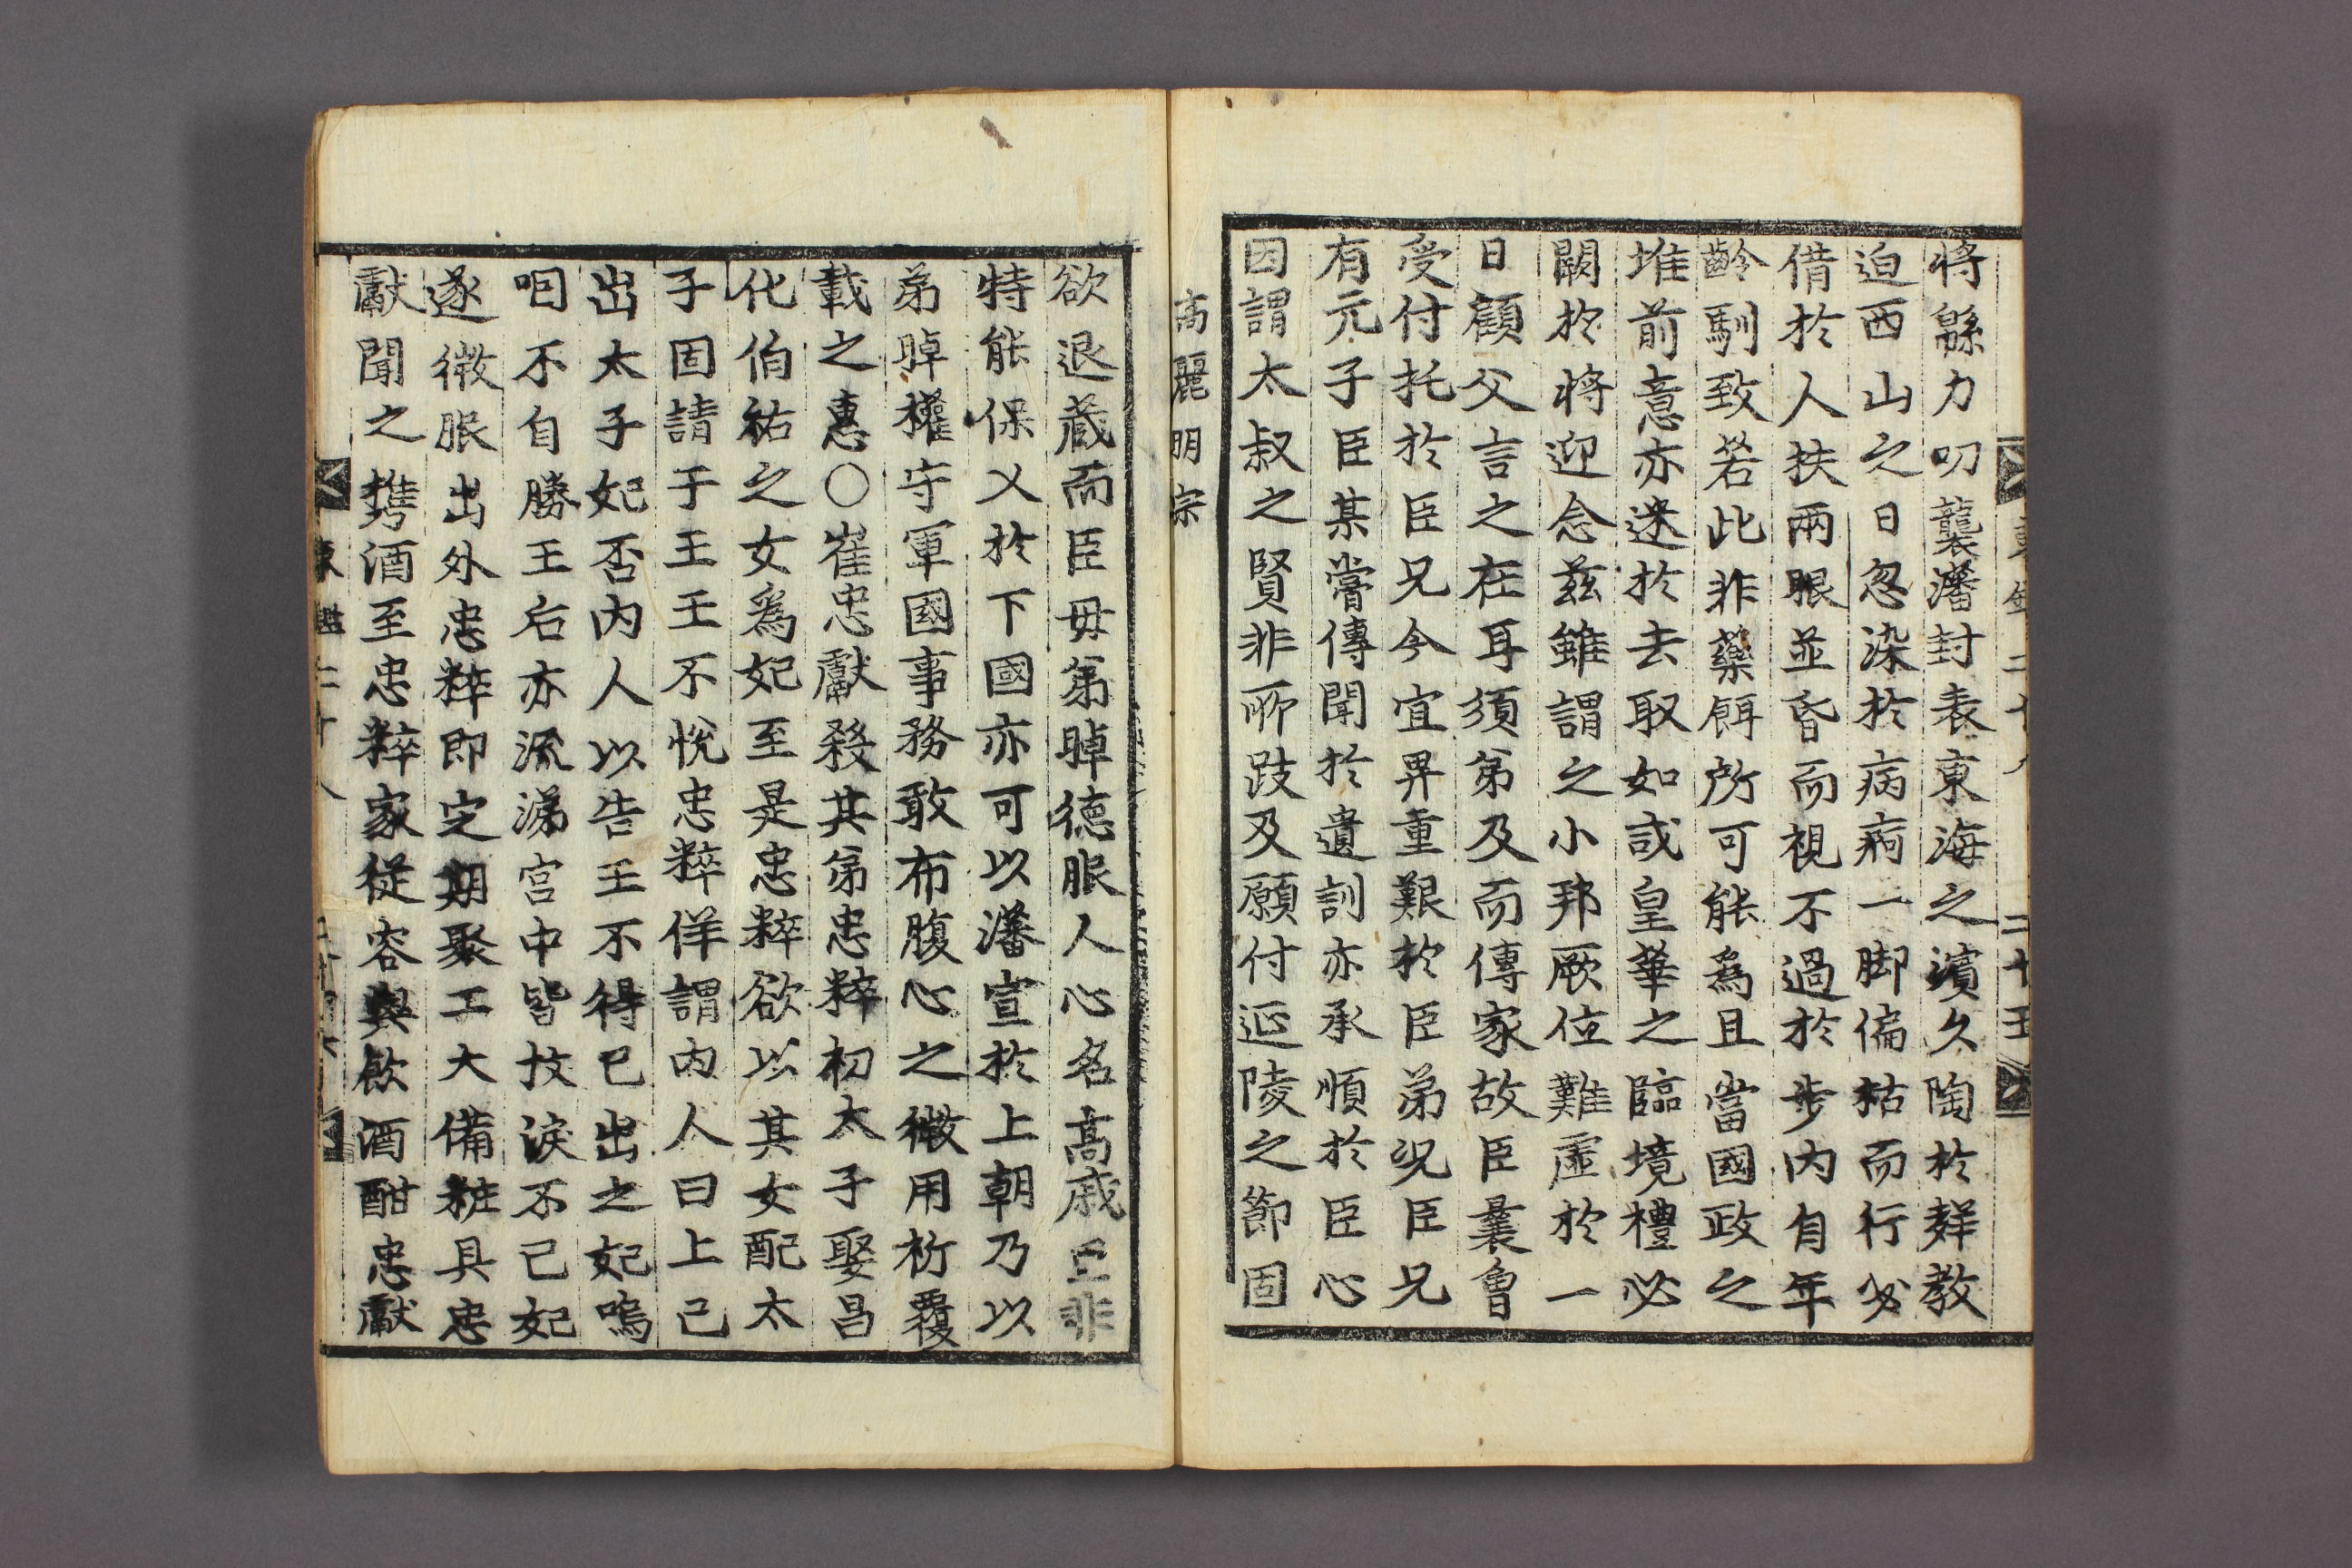 將緜力叨襲藩封表東海之濱久陶於羣教
迫西山之日忽染於病痾一脚偏枯而行必
借於人扶兩眼並昏而視不過於步內自年
齡馴致若此非藥餌所可能爲且當國政之
堆前意亦迷於去取如或皇華之臨境禮必
闕於將迎念玆雖謂之小邦厥位難虛於一
日顧父言之在耳須弟及而傳家故臣曩曾
受付托於臣兄今宜畀重艱於臣弟況臣兄
有元子臣某嘗傳聞於遺訓亦承順於臣心
因謂太叔之賢非所跂及願付延陵之節固
高麗明宗
欲退藏而臣母弟晫德服人心名高戚臣非
特能保乂於下國亦可以藩宣於上朝乃以
弟晫權守軍國事務敢布腹心之微用祈覆
載之惠○崔忠獻殺其弟忠粹初太子娶昌
化伯祐之女爲妃至是忠粹欲以其女配太
子固請于王王不悅忠粹佯謂內人曰上已
出太子妃否內人以告王不得已出之妃嗚
咽不自勝王后亦流涕宮中皆抆淚不已妃
遂微服出外忠粹卽定期聚工大備粧具忠
獻聞之携酒至忠粹家從容與飮酒酣忠獻